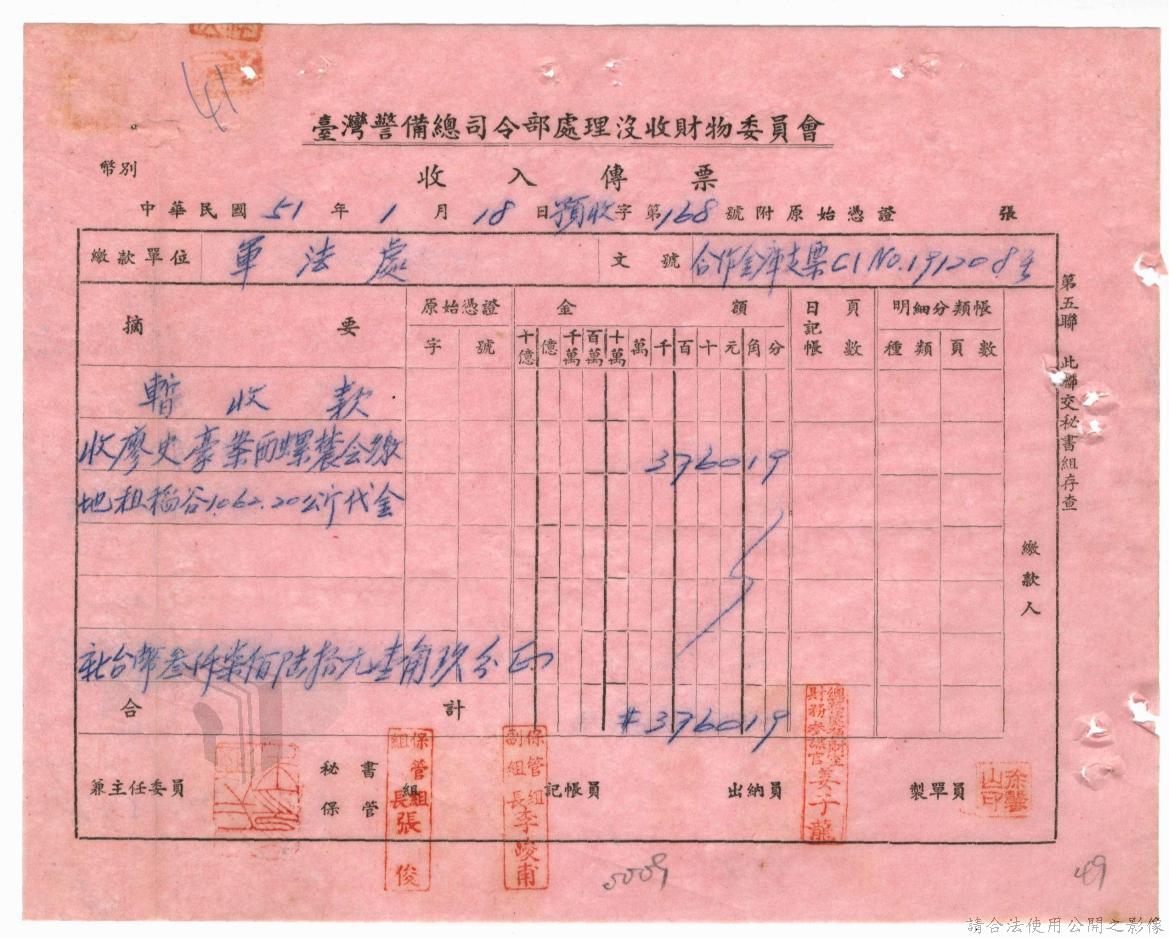 41
臺灣警備總司令部處理沒收財物委員會
幣別
收入傳票
中華民國 51 年 1 月 18 日 預收 字 第 168 號 附 原始憑證 張
繳款單位 軍法處 文號 合作金庫支票C1 No.191208號
摘要 原始憑證 金額 日記帳 頁數 明細分類帳
字 號 十億 億 千萬 百萬 十萬 萬 千 百 十 元 角 分 種類 頁數
暫收款
收廖史豪業西螺農会繳 376019
地租稻谷1062.20公斤代金
新台幣叁仟柒佰陸拾元壹角玖分正
合計 #376019
兼主任委員 秘書 保管 組 記帳員 出納員 製單員
保管組組長張俊
保管組副組長李峻甫
財務參謀官 姜子龍
繳款人
第五聯 此聯交秘書組存查
5009
49
請合法使用公開之影像